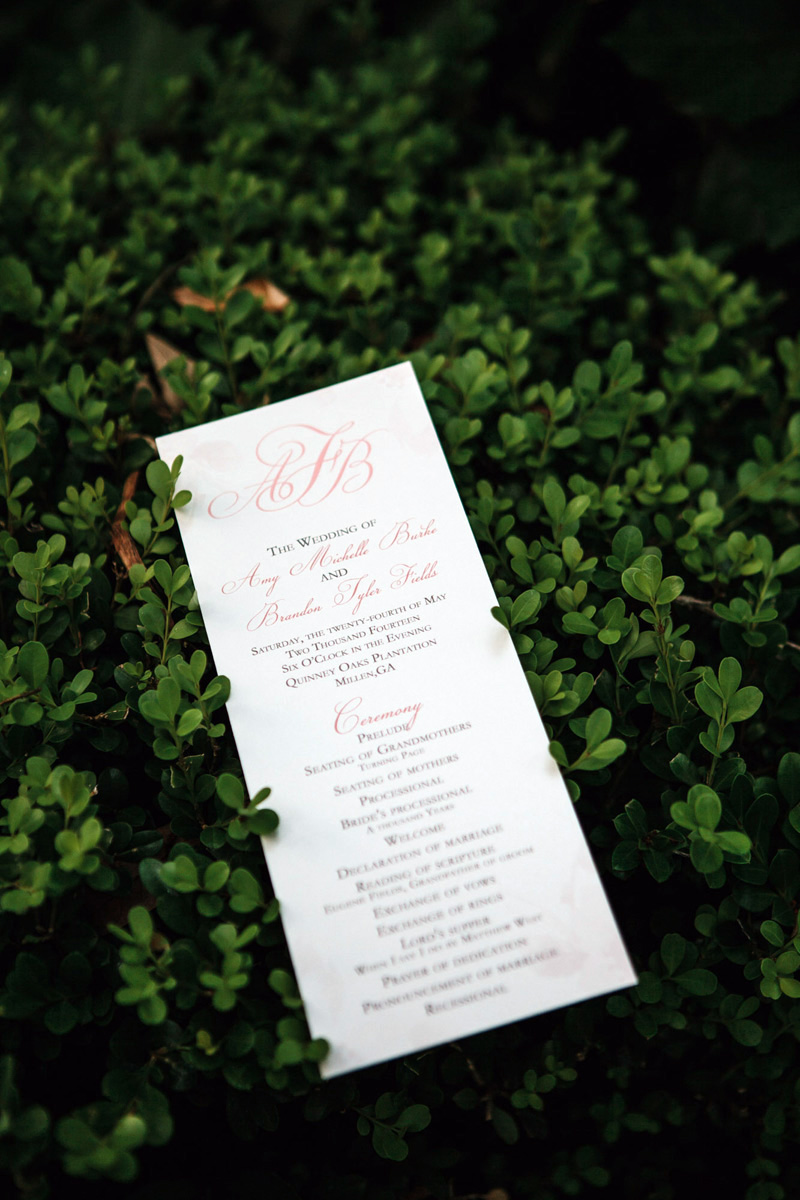 AFB
The Wedding of
Amy Michelle Burke
and
Brandon Tyler Fields
Saturday, the twenty-fourth of May
Two Thousand Fourteen
Six O'Clock in the Evening
Quinney Oaks Plantation
Millen,GA
Ceremony
Prelude
Seating of Grandmothers
Turning Page
Seating of mothers
Processional
Bride's processional
A thousand Years
Welcome
Declaration of marriage
Reading of scripture
Eugene Fields, Grandfather of groom
Exchange of vows
Exchange of rings
Lord's supper
When I Say I Do by Matthew West
Prayer of dedication
Pronouncement of marriage
Recessional